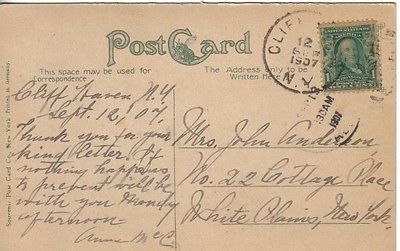 Post Card
This space may be used for
Correspondence
The Address only to be
Written here
Souvenir Post Card Co., New York. Printed in Germany.
Cliff Haven N.Y.
Sept. 12, 07.
Thank you for your
king letter. If
nothing happens
to prevent will be
with you Monday
afternoon.
Anna McC
Mrs. John Anderson
No. 22 Cottage Place
White Plains, New York.
CLIFF
12
1907
N.Y.
30AM
1907